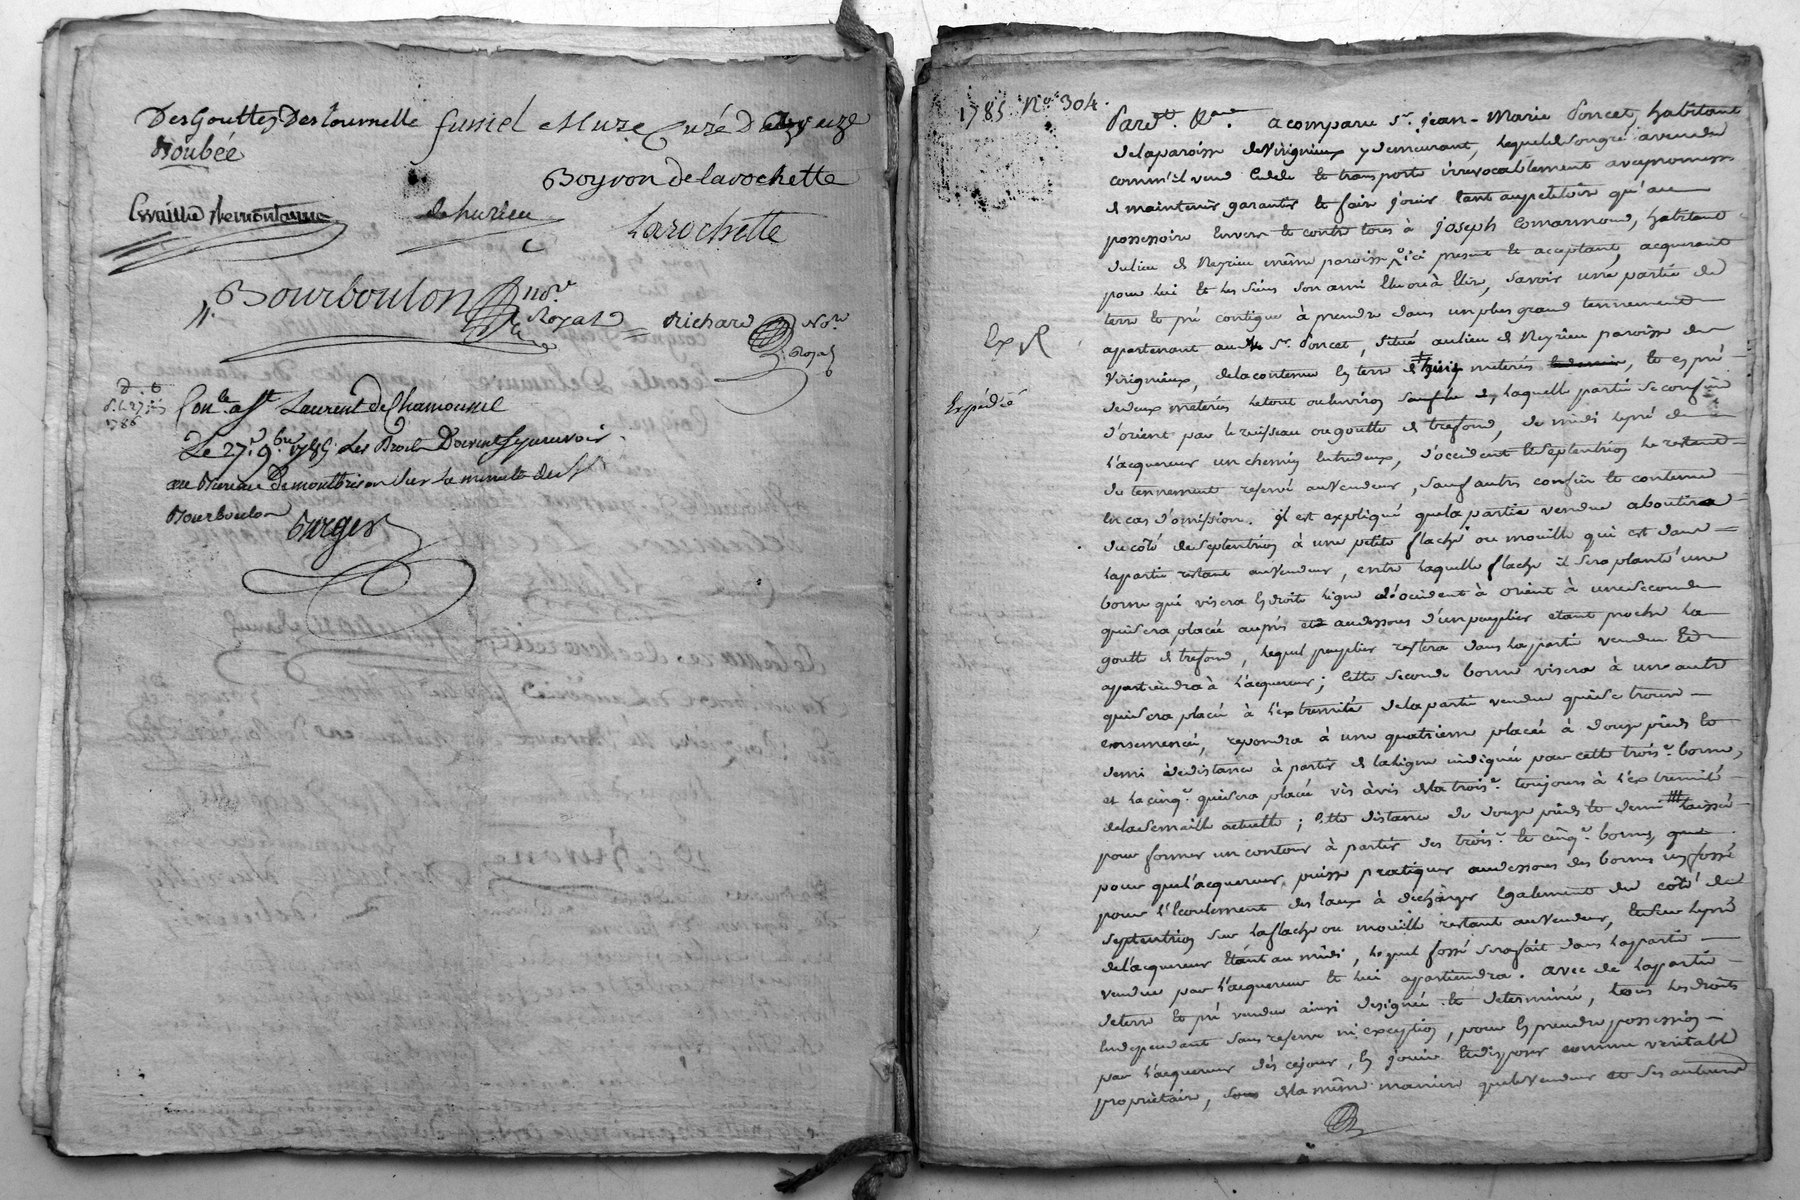 DesGouttes Destournelle
noubée
Boyron delarochette
dehurieu
Larochette
Bourboulon nore
Royal
Richard Nore
Royal
1786
Conlé aSt Laurent deChamousset
Le 27e 9bre 1785 les Droits
au Bureau demontbrison sur la minute du Sr
Bourboulon
Burger
1785 No 304.
Expédié
Pardt. acomparu sr jean-Marie Poncet, habitant
delaparoisse deVirignieux y demeurant, lequel desongré avendu
comm'il vend cede et transporte irrevocablement avecpromesse
de maintenir garantir et faire jouir tant aupetitoire qu'au
possessoire envers et contre tous à joseph Comarmond, habitant
dulieu de Reyrieu même paroisse ici present et acceptant, acquerant
pour lui et les siens son ami elu ou à elire, savoir une partie de
terre et pré contigue à prendre dans unplus grand tennement
apartenant audt sr Poncet, situé aulieu de Reyrieu paroisse de
Virignieux, delacontenue en terre de meterés et en pré
dedeux meterés letout ouenviron laquelle partie seconfine
d'orient par le ruisseau ou goutte de trefond, de midi lepré de
l'acquereur un chemin entredeux, d'occident et septentrion le restant
du tennement reservé auvendeur, sauf autres confins et contenue
en cas d'omission. il est expliqué quela partie vendue aboutira
du côté de septentrion à une petite flache ou mouille qui est dans
lapartie restant auvendeur, entre laquelle flache il sera planté une
borne qui visera en droite ligne d'occident à orient à une seconde
quisera placée auprès et audessous d'un peuplier etant proche la
goutte de trefond, lequel peuplier restera dans lapartie vendue et
appartiendra à l'acquereur; cette seconde borne visera à une autre
quisera placée à l'extremité delapartie vendue quise trouve
ensemencée, repondra à une quatrieme placée à douze pieds et
demi dedistance à partir de laligne indiquée par cette troise borne,
et la cinqe quisera placée vis àvis dela troise toujours à l'extremité
delasemaille actuelle; cette distance de douze pieds et demi laissée
pour former un contour à partir des troise et cinqe bornes,
pour quel'acquereur puisse pratiquer audessous des bornes un fossé
pour l'écoulement des eaux à decharger egalement du côté de
septentrion sur laflache ou mouille restant auvendeur, et sur lepré
del'acquereur étant au midi, lequel fossé serafait dans lapartie
vendue par l'acquereur et lui appartiendra. avec de lapartie
deterre et pré vendue ainsi designée et determinée, tous les droits
endependant sans reserve ni exception, pour en prendre possession
par l'acquereur dès cejour, en jouir et disposer comme veritable
propriétaire, dela même maniere quelevendeur et ses auteurs